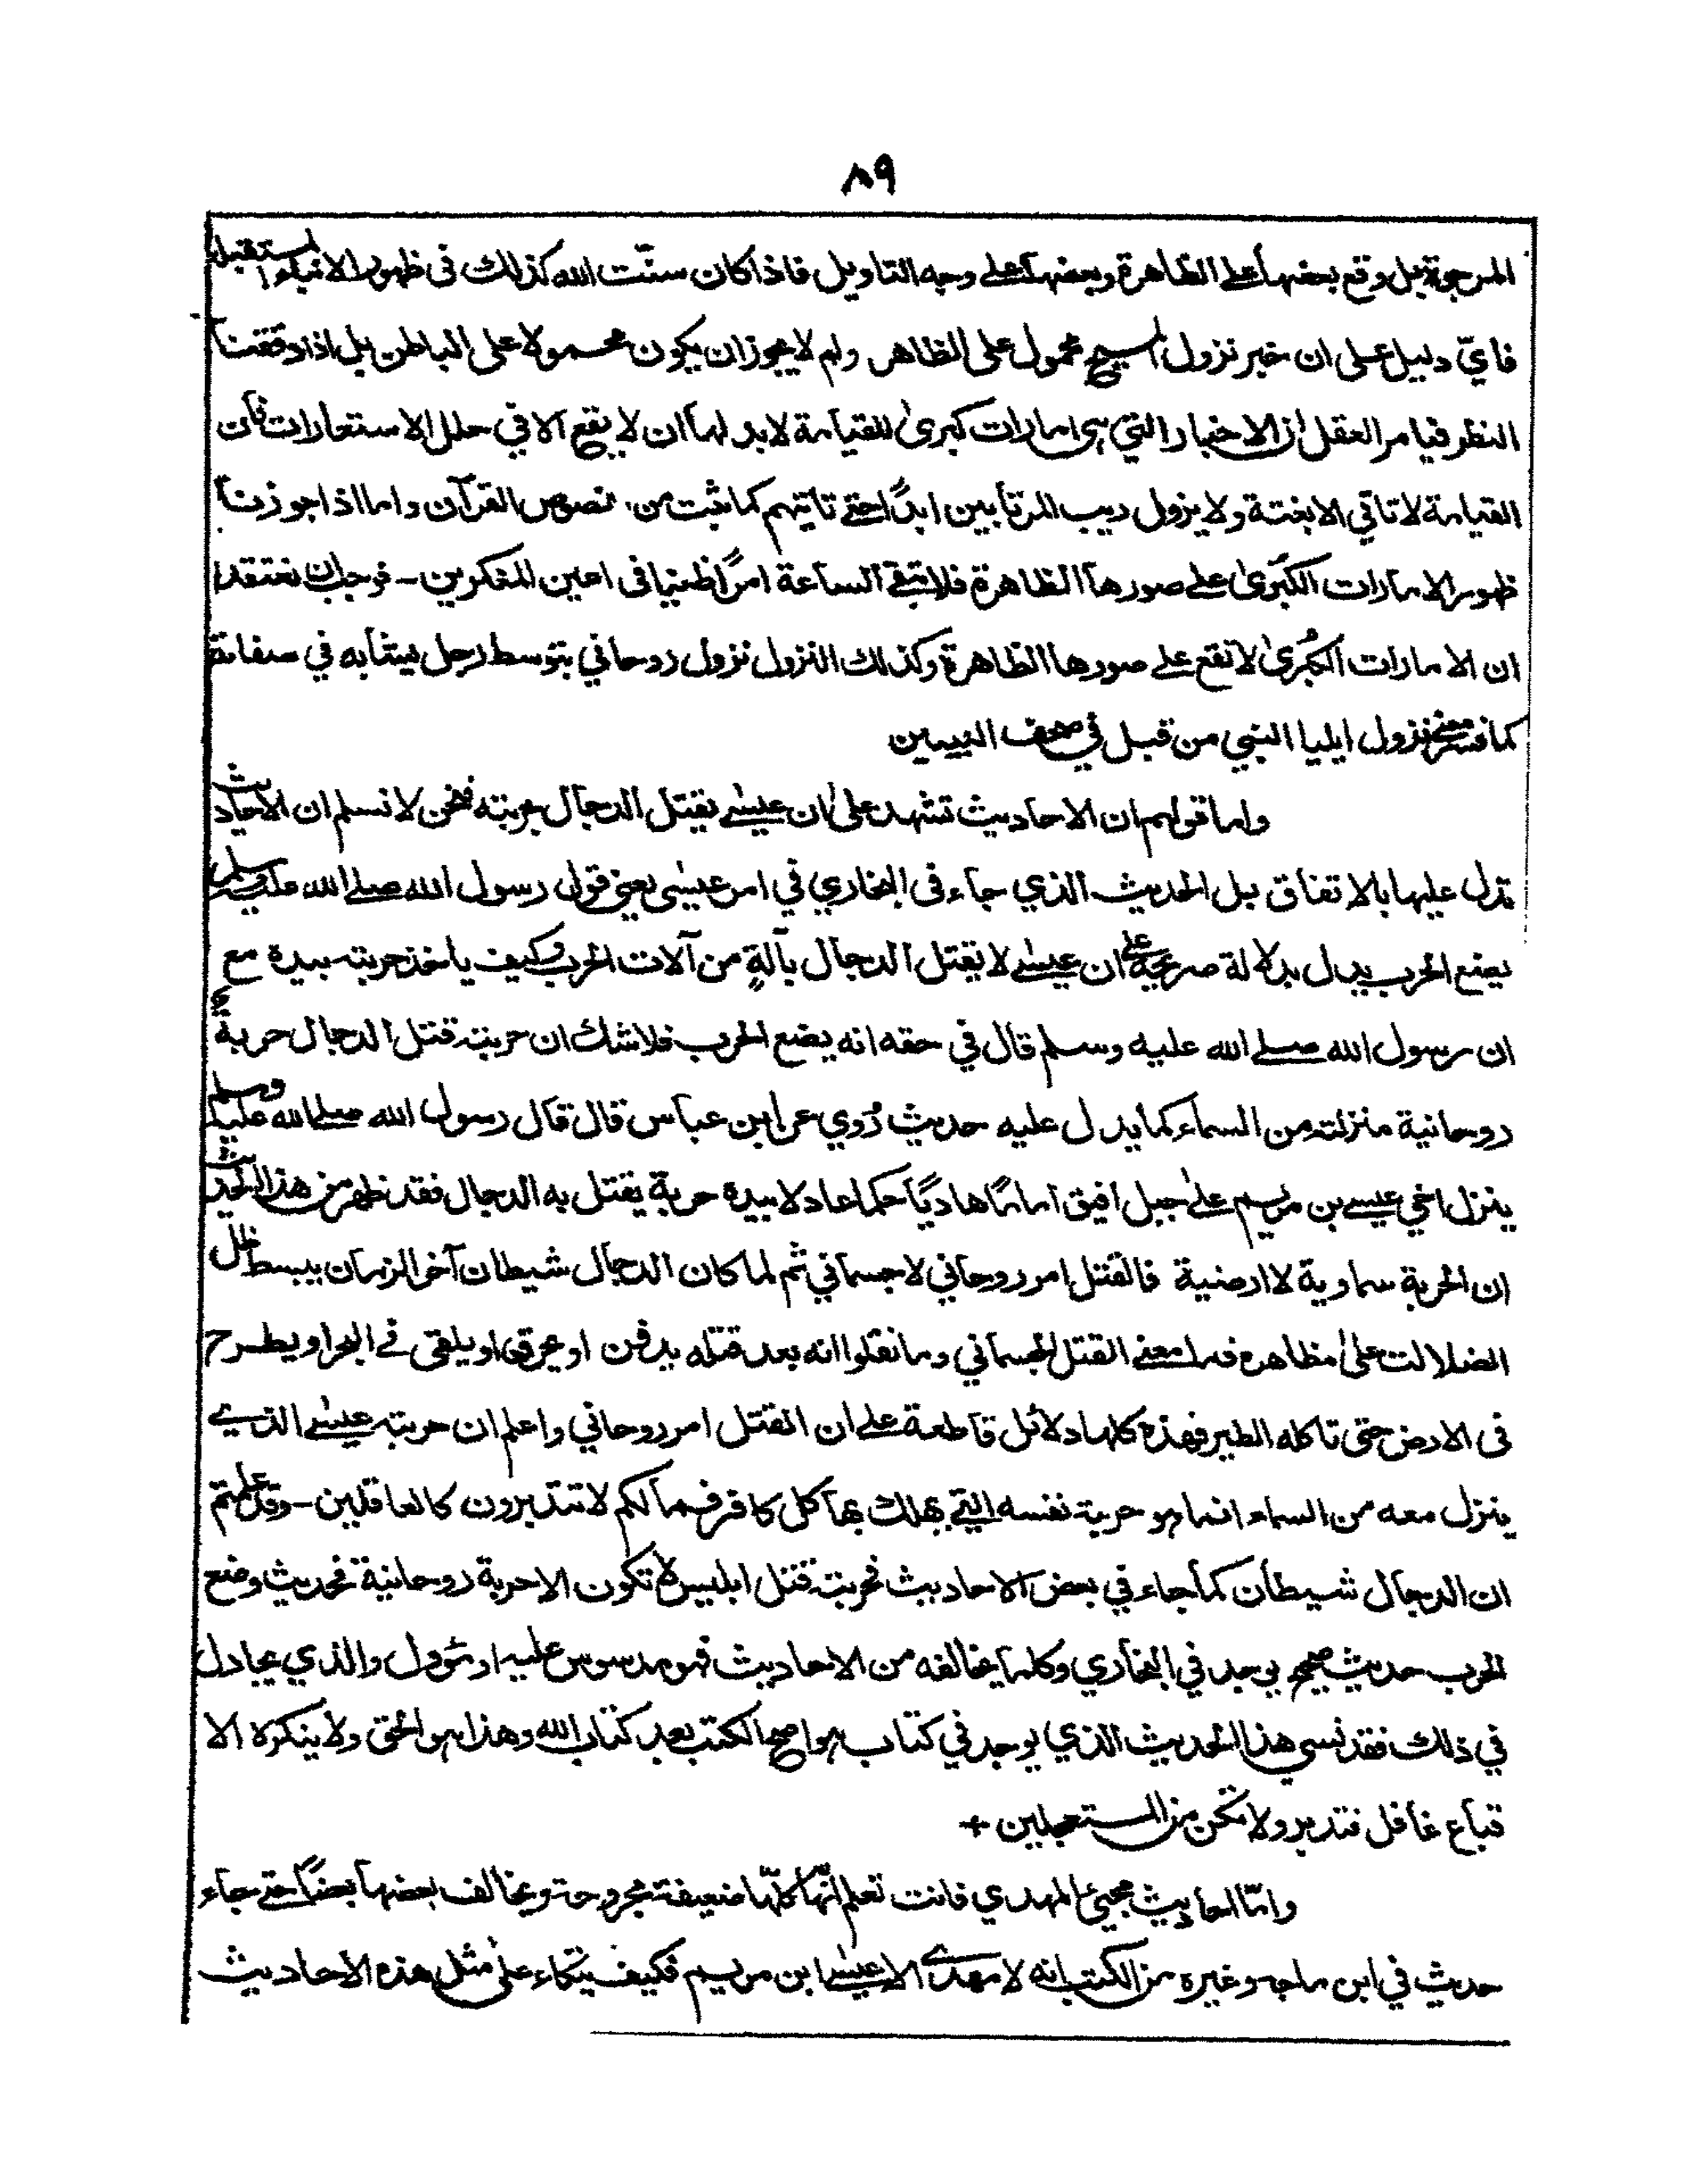 ٨٩
المرجوة بل وقع بعضها على الظاهرة وبعضها على وجه التاويل فاذا كان سنّت الله كذلك فى ظهور الانباء المستقبلة
فايّ دليل على ان خبر نزول المسيح محمول على الظاهر ولم لا يجوز ان يكون محمولا على الباطن بل اذا دققنا
النظر فيامر العقل ان الاخبار التي هى امارات كبرىٰ للقيامة لا بد لها ان لا يقع الا في حلل الاستعارات فان
القيامة لا تاتي الا بغتة ولا يزول ريب المرتابين ابدًا حتى تاتيهم كما ثبت من نصوص القرآن واما اذا جوزنا
ظهور الامارات الكبرىٰ على صورها الظاهرة فلا تبقى الساعة امرًا ظنيا فى اعين المنكرين - فوجب ان نعتقد
ان الامارات الكُبرىٰ لا تقع على صورها الظاهرة وكذلك النزول نزول روحاني بتوسط رجل يشابه في صفاته
كما فسر معنى نزول ايليا النبي من قبل في صحف النبيين
واما قولهم ان الاحاديث تشهد علىٰ ان عيسىٰ يقتل الدجال بحربته فنحن لا نسلم ان الاحاديث
تدل عليها بالاتفاق بل الحديث الذي جاء فى البخاري في امر عيسىٰ يعني قول رسول الله صلى الله عليه وسلم
يضع الحرب يدل بدلالة صريحة على ان عيسىٰ لا يقتل الدجال بآلةٍ من آلات الحرب وكيف ياخذ حربته بيده مع
ان رسول الله صلى الله عليه وسلم قال في حقه انه يضع الحرب فلا شك ان حربته قتل الدجال حربةً
روحانية منزلته من السماء كما يدل عليه حديث رُوي عن ابن عباس قال قال رسول الله صلى الله عليه وسلم
ينزل اخي عيسى بن مريم علىٰ جبل افيق امامًا هاديًا حكما عادلا بيده حربة يقتل به الدجال فقد ظهر من هذا الحديث
ان الحربة سماوية لا ارضية فالقتل امر روحاني لا جسماني ثم لما كان الدجال شيطان آخر الزمان يبسط ظل
الضلالت علىٰ مظاهره فما معنى القتل الجسماني وما نقلوا انه بعد قتله يدفن او يحرق او يلقى في البحر او يطرح
فى الارض حتى تاكله الطير فهذه كلها دلائل قاطعة على ان القتل امر روحاني واعلم ان حربته عيسىٰ الذي
ينزل معه من السماء انما هو حربة نفسه التي يهلك بها كل كافر فما لكم لا تتدبرون كالعاقلين - وقد علمتم
ان الدجال شيطان كما جاء في بعض الاحاديث فحربته قتل ابليس لا تكون الا حربة روحانية فحديث وضع
الحرب حديث صحيح يوجد في البخاري وكلما يخالفه من الاحاديث فهو مدسوس عليه او مئوول والذي يجادل
في ذلك فقد نسي هذا الحديث الذي يوجد في كتاب هو اصح الكتب بعد كتاب الله وهذا هو الحق ولا ينكره الا
قباع غافل فتدبر ولا تكن من المستعجلين +
وامّا احاديث مجيئ المهدي فانت تعلم انّها كلّها ضعيفة مجروحة ويخالف بعضها بعضًا حتى جاء
حديث في ابن ماجه وغيره من الكتب انه لا مهدي الا عيسىٰ ابن مريم فكيف يتكاء علىٰ مثل هذه الاحاديث